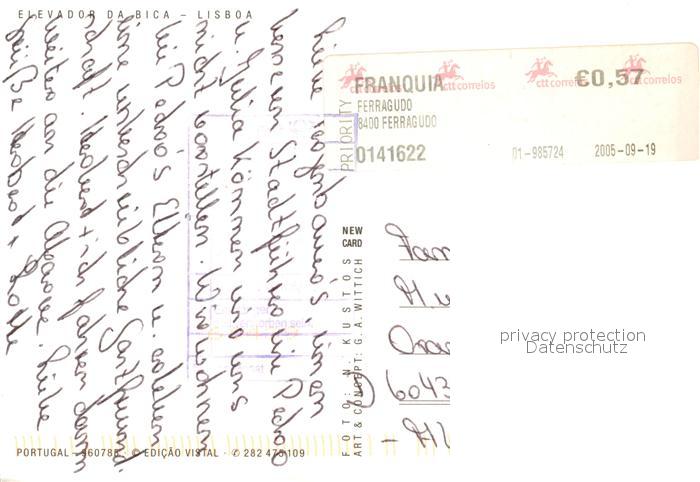 ELEVADOR DA BICA – LISBOA
Liebe
besseren Stadtführer wie Pedro
u. Julia können wir uns
nicht vorstellen. Wir wohnen
bei Pedros Eltern u. erleben
eine unbeschreibliche Gastfreund-
schaft. Herbert + ich fahren dann
weiter an die Algarve. Liebe
Grüße Herbert +
PORTUGAL - 960788 · © EDIÇÃO VISTAL · ✆ 282 475 109
FOTO: N. KUSTOS
ART & CONCEPT: G.A. WITTICH
NEW
CARD
PRIORITY
FRANQUIA
ctt correios
ctt correios
ctt correios
€0,57
FERRAGUDO
8400 FERRAGUDO
0141622
01-985724
2005-09-19
Fam
H. u
6043
privacy protection
Datenschutz